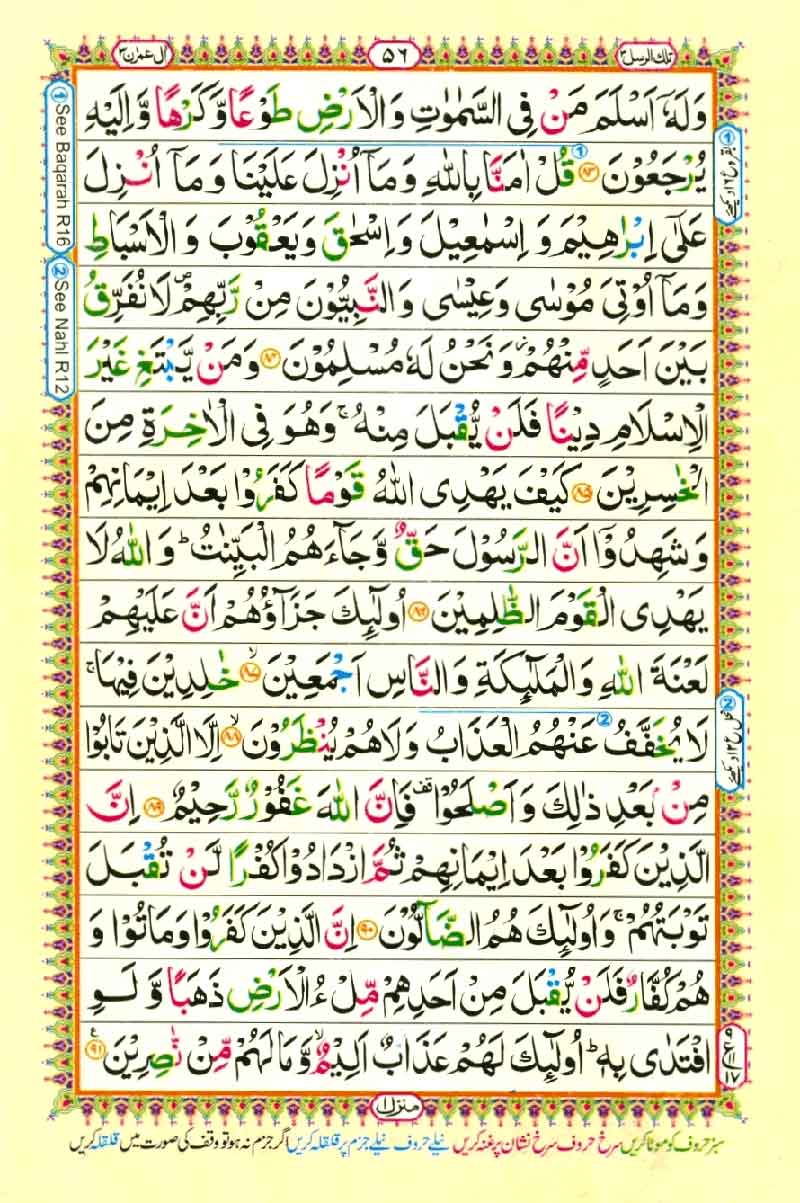 تلك الرسل ٣
٥٦
ال عمرٰن ٣
وَلَهٗۤ اَسْلَمَ مَنْ فِی السَّمٰوٰتِ وَالْاَرْضِ طَوْعًا وَّكَرْهًا وَّاِلَیْهِ
یُرْجَعُوْنَ ﴿۸۳﴾ قُلْ اٰمَنَّا بِاللّٰهِ وَمَاۤ اُنْزِلَ عَلَیْنَا وَمَاۤ اُنْزِلَ
عَلٰۤی اِبْرٰهِیْمَ وَ اِسْمٰعِیْلَ وَ اِسْحٰقَ وَیَعْقُوْبَ وَ الْاَسْبَاطِ
وَمَاۤ اُوْتِیَ مُوْسٰی وَعِیْسٰی وَ النَّبِیُّوْنَ مِنْ رَّبِّهِمْ۪ لَا نُفَرِّقُ
بَیْنَ اَحَدٍ مِّنْهُمْ٘ وَنَحْنُ لَهٗ مُسْلِمُوْنَ ﴿۸۴﴾ وَمَنْ یَّبْتَغِ غَیْرَ
الْاِسْلَامِ دِیْنًا فَلَنْ یُّقْبَلَ مِنْهُ ۚ وَهُوَ فِی الْاٰخِرَةِ مِنَ
الْخٰسِرِیْنَ ﴿۸۵﴾ كَیْفَ یَهْدِی اللّٰهُ قَوْمًا كَفَرُوْا بَعْدَ اِیْمَانِهِمْ
وَ شَهِدُوْۤا اَنَّ الرَّسُوْلَ حَقٌّ وَّجَآءَهُمُ الْبَیِّنٰتُ ؕ وَ اللّٰهُ لَا
یَهْدِی الْقَوْمَ الظّٰلِمِیْنَ ﴿۸۶﴾ اُولٰٓئِكَ جَزَآؤُهُمْ اَنَّ عَلَیْهِمْ
لَعْنَةَ اللّٰهِ وَالْمَلٰٓئِكَةِ وَ النَّاسِ اَجْمَعِیْنَ ﴿۸۷﴾ۙ خٰلِدِیْنَ فِیْهَا ۚ
لَا یُخَفَّفُ عَنْهُمُ الْعَذَابُ وَلَا هُمْ یُنْظَرُوْنَ ﴿۸۸﴾ۙ اِلَّا الَّذِیْنَ تَابُوْا
مِنْۢ بَعْدِ ذٰلِكَ وَ اَصْلَحُوْا ۫ فَاِنَّ اللّٰهَ غَفُوْرٌ رَّحِیْمٌ ﴿۸۹﴾ اِنَّ
الَّذِیْنَ كَفَرُوْا بَعْدَ اِیْمَانِهِمْ ثُمَّ ازْدَادُوْا كُفْرًا لَّنْ تُقْبَلَ
تَوْبَتُهُمْ ۚ وَ اُولٰٓئِكَ هُمُ الضَّآلُّوْنَ ﴿۹۰﴾ اِنَّ الَّذِیْنَ كَفَرُوْا وَمَاتُوْا وَ
هُمْ كُفَّارٌ فَلَنْ یُّقْبَلَ مِنْ اَحَدِهِمْ مِّلْءُ الْاَرْضِ ذَهَبًا وَّ لَوِ
افْتَدٰی بِهٖ ؕ اُولٰٓئِكَ لَهُمْ عَذَابٌ اَلِیْمٌ ۙ وَّمَا لَهُمْ مِّنْ نّٰصِرِیْنَ ﴿۹۱﴾
① See Baqarah R16
② See Nahl R12
منزل ۱
سبز حروف کو موٹا کریں سرخ حروف سرخ نشان پر غنہ کریں نیلے حروف نیلے جزم پر قلقلہ کریں اگر جزم نہ ہو تو وقف کی صورت میں قلقلہ کریں